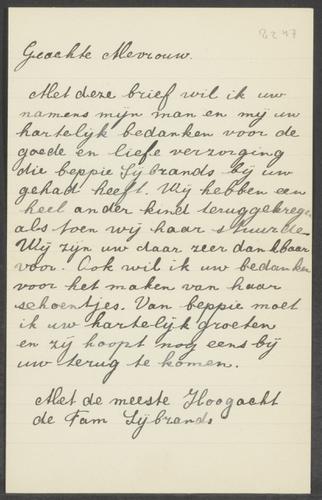 8247
Geachte Mevrouw.
Met deze brief wil ik uw
namens mijn man en mij uw
hartelijk bedanken voor de
goede en liefe verzorging
die beppie Sijbrands bij uw
gehad heeft. Wij hebben een
heel ander kind teruggekrege
als toen wij haar stuurde.
Wij zijn uw daar zeer dankbaar
voor. Ook wil ik uw bedanken
voor het maken van haar
schoentjes. Van beppie moet
ik uw hartelijk groeten
en zij hoopt nog eens bij
uw terug te komen.
Met de meeste Hoogacht
de Fam Sijbrands